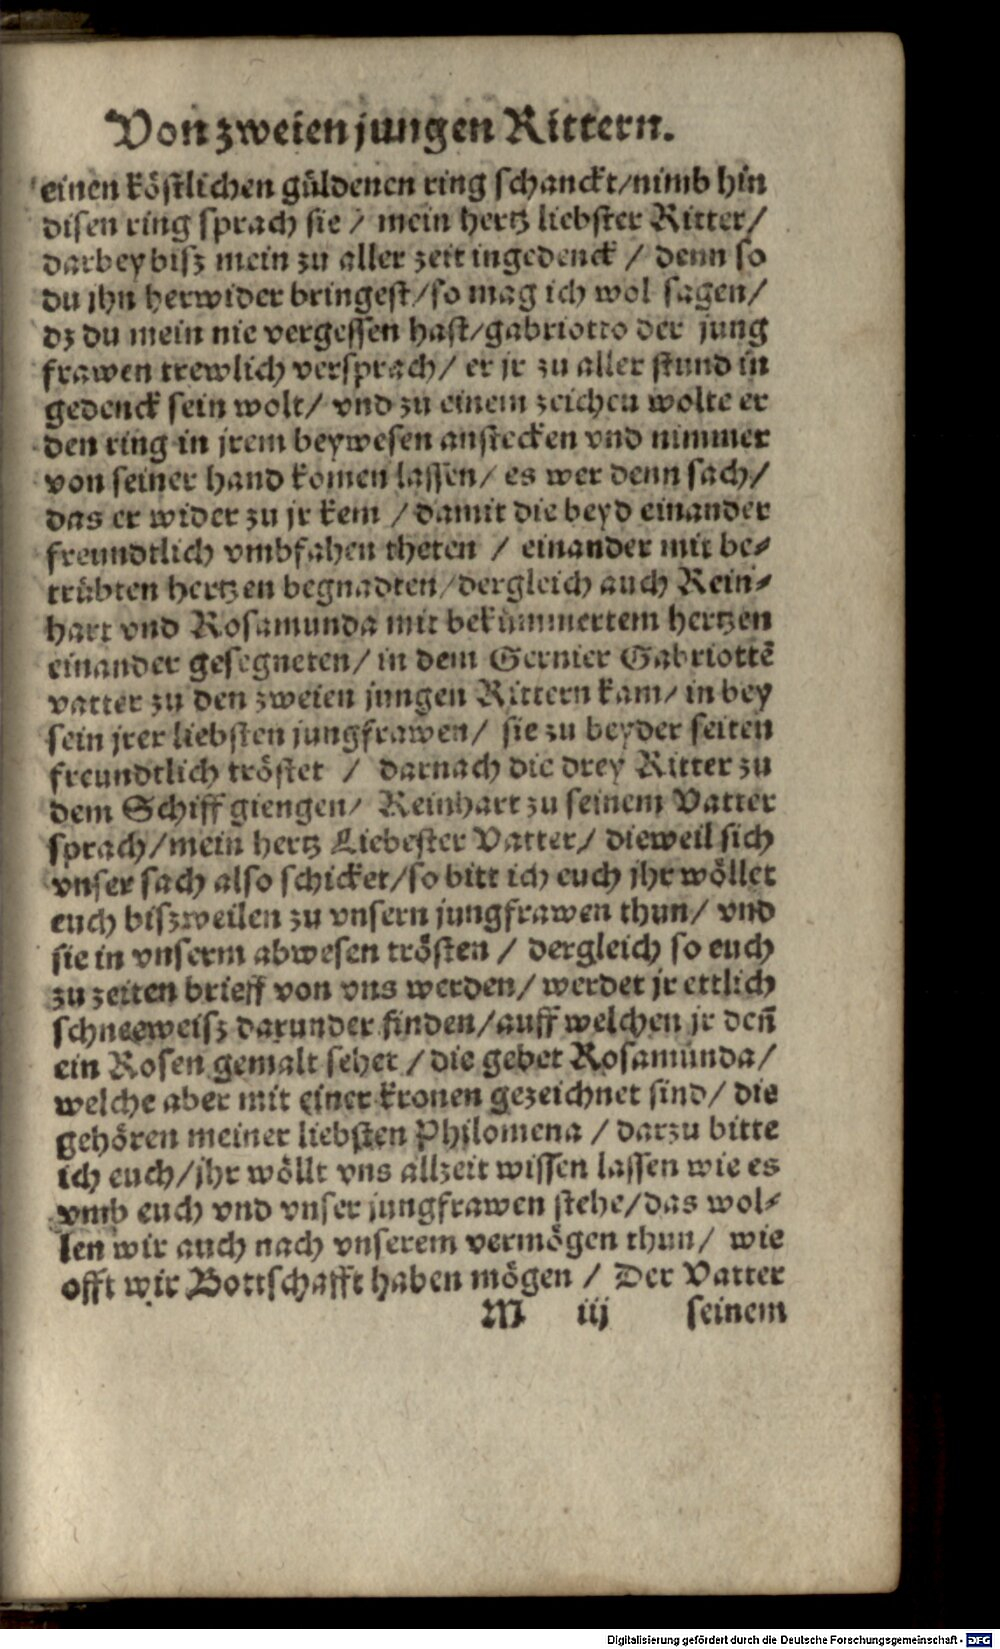 Von zweien jungen Rittern.
einen köstlichen güldenen ring schanckt/nimb hin
disen ring sprach sie / mein hertz liebster Ritter/
darbey bisz mein zu aller zeit ingedenck / denn so
du jhn herwider bringest/so mag ich wol sagen/
dz du mein nie vergessen hast/gabriotto der jung
frawen trewlich versprach/ er jr zu aller stund in
gedenck sein wolt/ vnd zu einem zeichen wolte er
den ring in jrem beywesen anstecken vnd nimmer
von seiner hand komen lassen/ es wer denn sach/
das er wider zu jr kem / damit die beyd einander
freundtlich vmbfahen theten / einander mit be-
trübten hertzen begnadten/dergleich auch Rein-
hart vnd Rosamunda mit bekümmertem hertzen
einander gesegneten/ in dem Gernier Gabriottē
vatter zu den zweien jungen Rittern kam/ in bey
sein jrer liebsten jungfrawen/ sie zu beyder seiten
freundtlich tröstet / darnach die drey Ritter zu
dem Schiff giengen/ Reinhart zu seinem Vatter
sprach/mein hertz Liebester Vatter/ dieweil sich
vnser sach also schicket/so bitt ich euch jhr wöllet
euch biszweilen zu vnsern jungfrawen thun/ vnd
sie in vnserm abwesen trösten / dergleich so euch
zu zeiten brieff von vns werden/ werdet jr ettlich
schneeweisz darunder finden/auff welchen jr den̄
ein Rosen gemalt sehet / die gebet Rosamunda/
welche aber mit einer kronen gezeichnet sind/ die
gehören meiner liebsten Philomena / darzu bitte
ich euch/jhr wöllt vns allzeit wissen lassen wie es
vmb euch vnd vnser jungfrawen stehe/das wol-
len wir auch nach vnserem vermögen thun/ wie
offt wir Bottschafft haben mögen / Der Vatter
M iij seinem
Digitalisierung gefördert durch die Deutsche Forschungsgemeinschaft - DFG